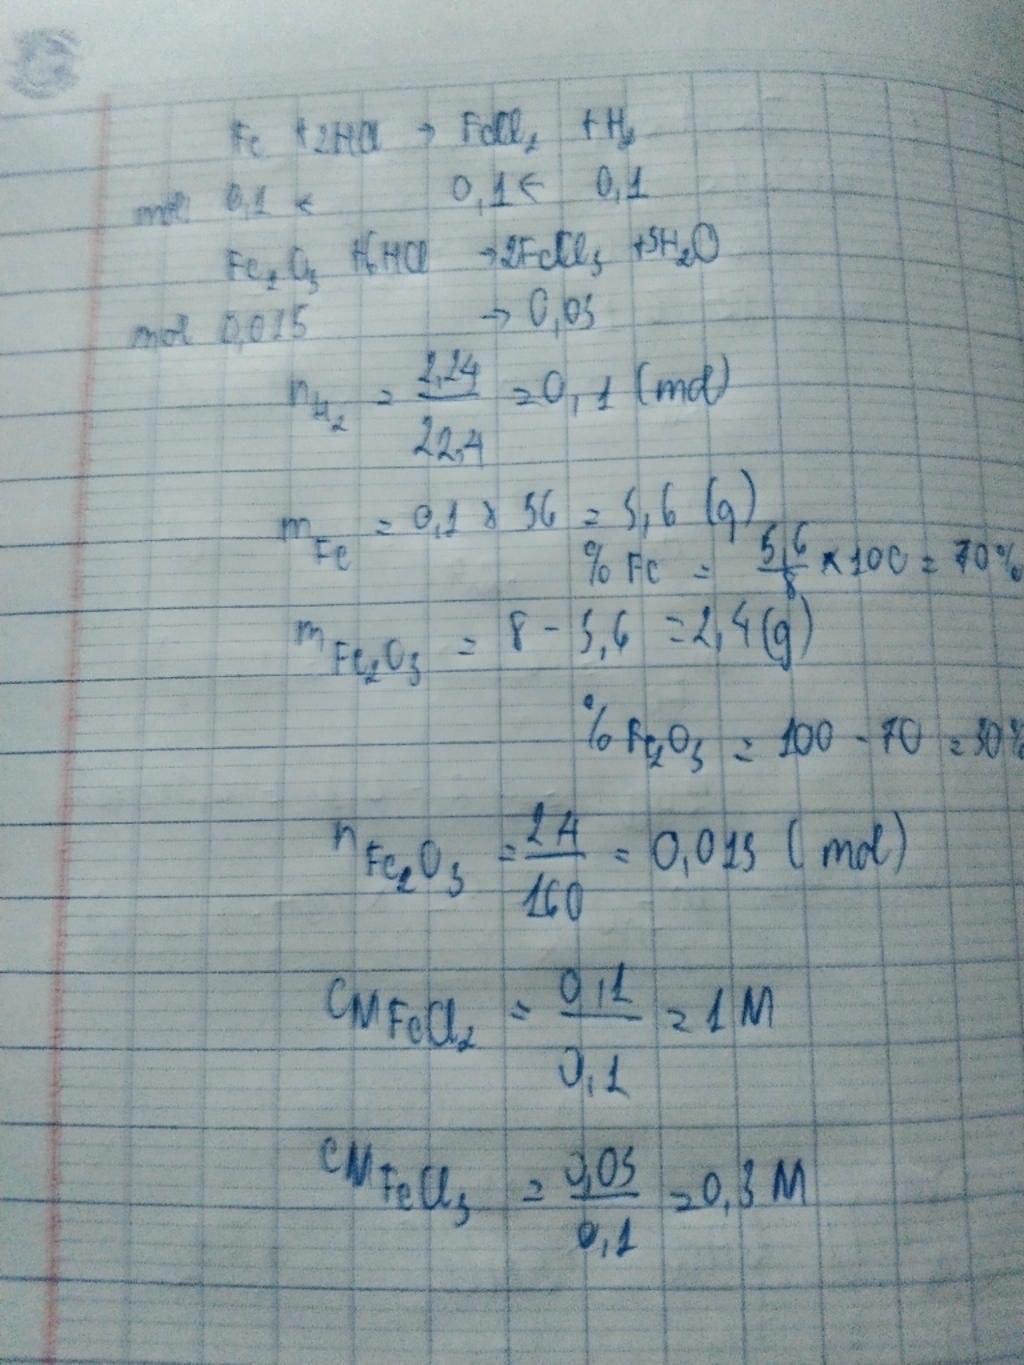 Fe + 2HCl → FeCl₂ + H₂
mol 0,1 ← 0,1 ← 0,1
Fe₂O₃ + 6HCl → 2FeCl₃ + 3H₂O
mol 0,015 → 0,03
n H₂ = 2,24 / 22,4 = 0,1 (mol)
m Fe = 0,1 x 56 = 5,6 (g)
% Fe = 5,6 / 8 x 100 = 70%
m Fe₂O₃ = 8 - 5,6 = 2,4 (g)
% Fe₂O₃ = 100 - 70 = 30%
n Fe₂O₃ = 2,4 / 160 = 0,015 (mol)
CM FeCl₂ = 0,1 / 0,1 = 1 M
CM FeCl₃ = 0,03 / 0,1 = 0,3 M